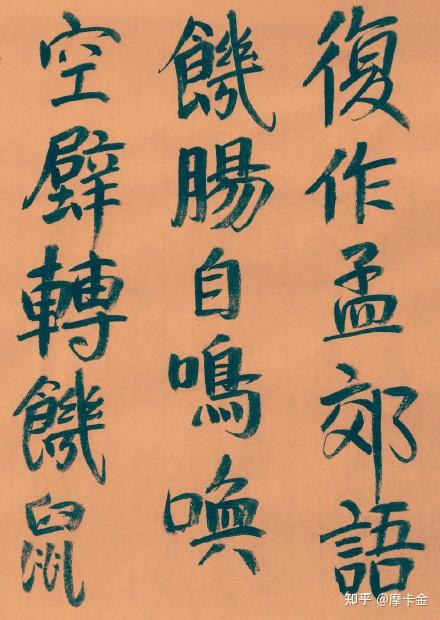 復作孟郊語
饑腸自鳴喚
空壁轉饑鼠
知乎 @摩卡金